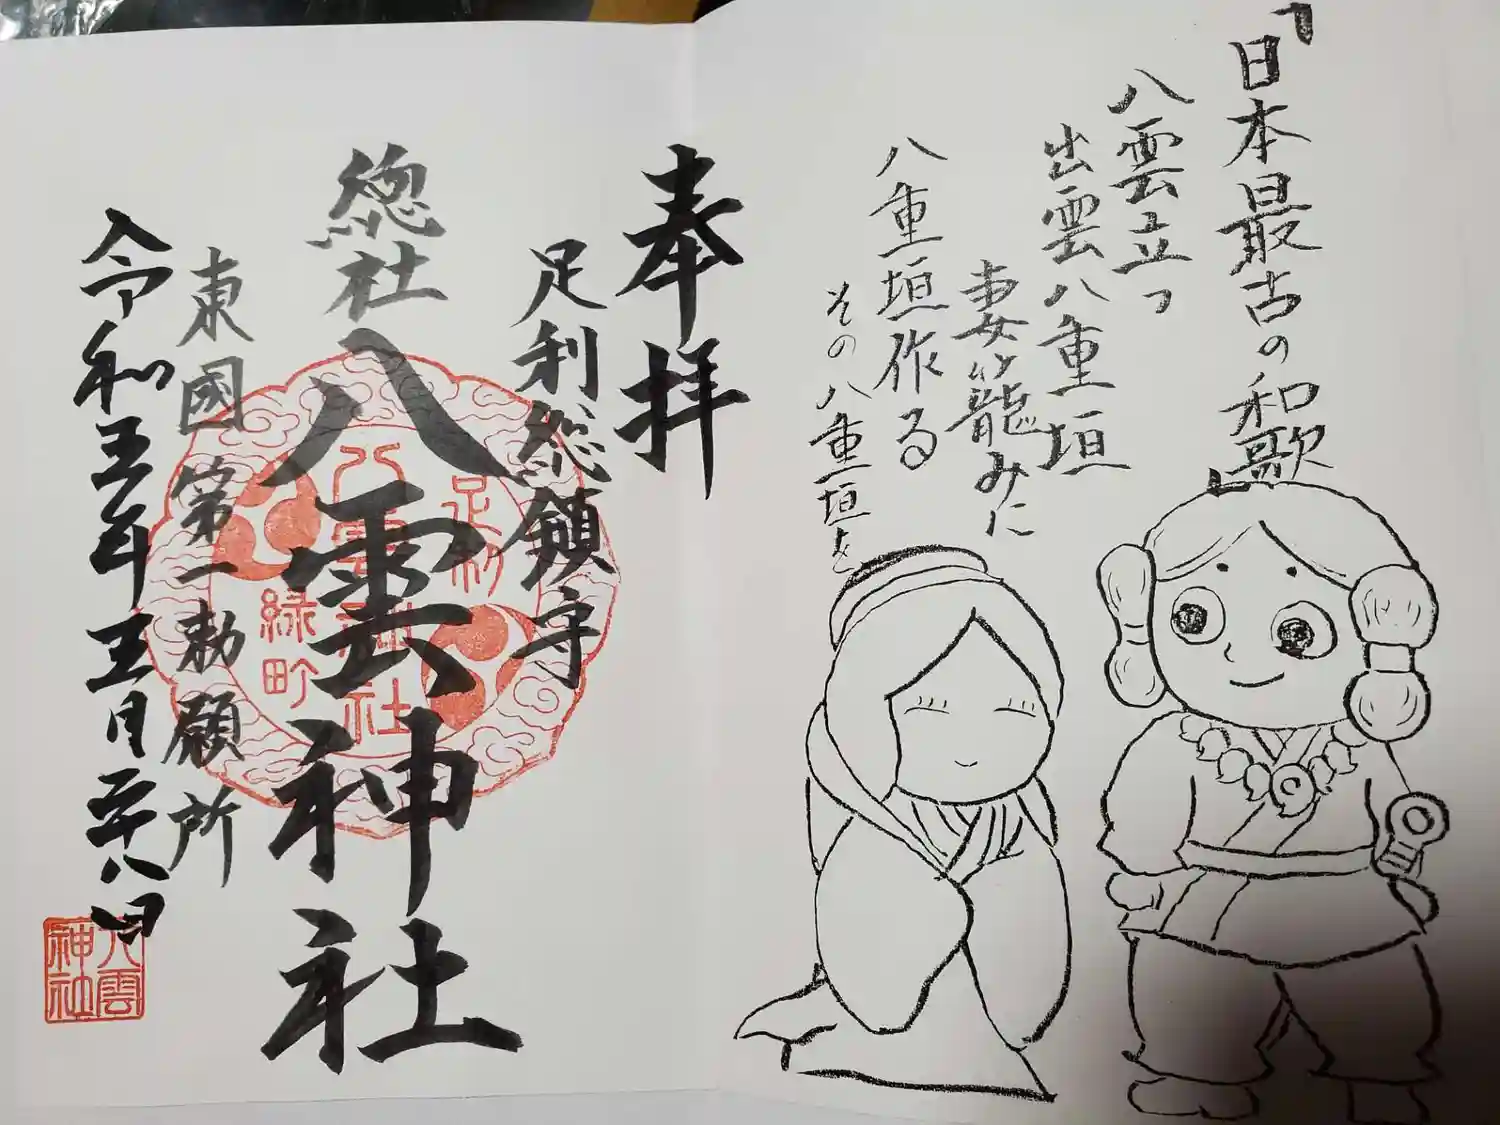 「日本最古の和歌」
八雲立つ
出雲八重垣
妻籠みに
八重垣作る
その八重垣を
奉拝
足利総鎮守
総社
八雲神社
東國第一勅願所
令和五年五月二十八日
足利
八雲神社
緑町
八雲
神社